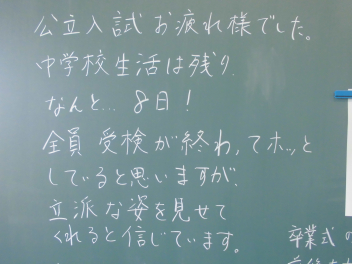 公立入試お疲れ様でした。
中学校生活は残り
なんと… 8日！
全員 受検が終わってホッと
していると思いますが、
立派な姿を見せて
くれると信じています。
卒業式の